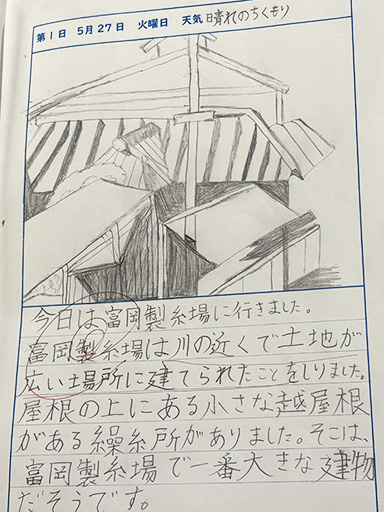 第1日 5月27日 火曜日 天気 晴れのちくもり
今日は富岡製糸場に行きました。
富岡製糸場は川の近くで土地が
広い場所に建てられたことをしりました。
屋根の上にある小さな越屋根
がある繰糸所がありました。そこは、
富岡製糸場で一番大きな建物
だそうです。